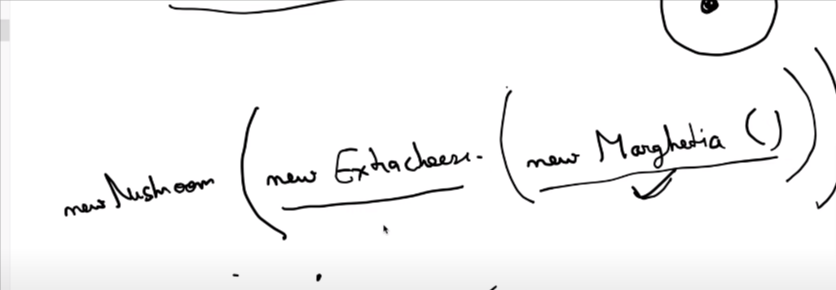 new Mushroom (new Extracheese. (new Marghetia ()))